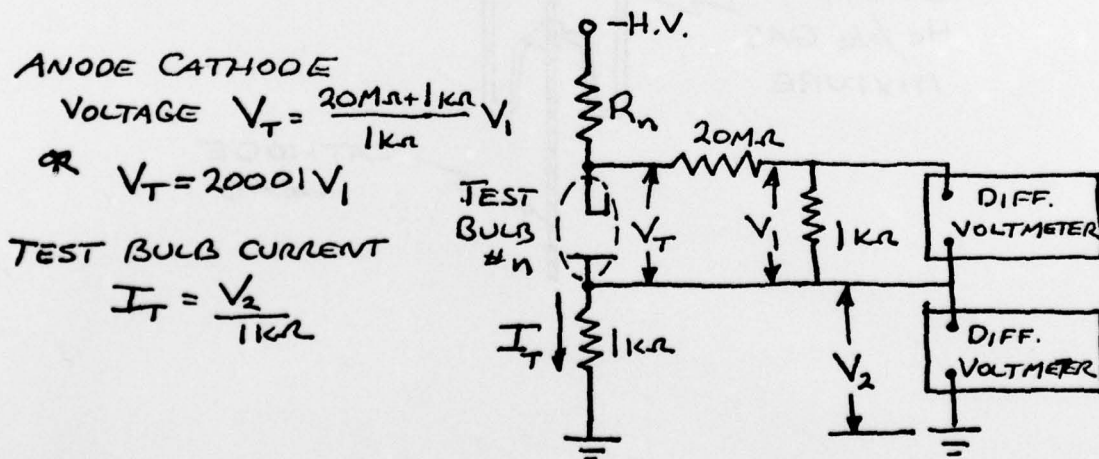 ANODE CATHODE
VOLTAGE V_T = (20MΩ+1KΩ)/1KΩ V_1
OR V_T = 20001 V_1
TEST BULB CURRENT
I_T = V_2/1KΩ
-H.V.
R_n
20MΩ
TEST
BULB
#n
V_T
V_1
1KΩ
DIFF.
VOLTMETER
I_T
1KΩ
V_2
DIFF.
VOLTMETER